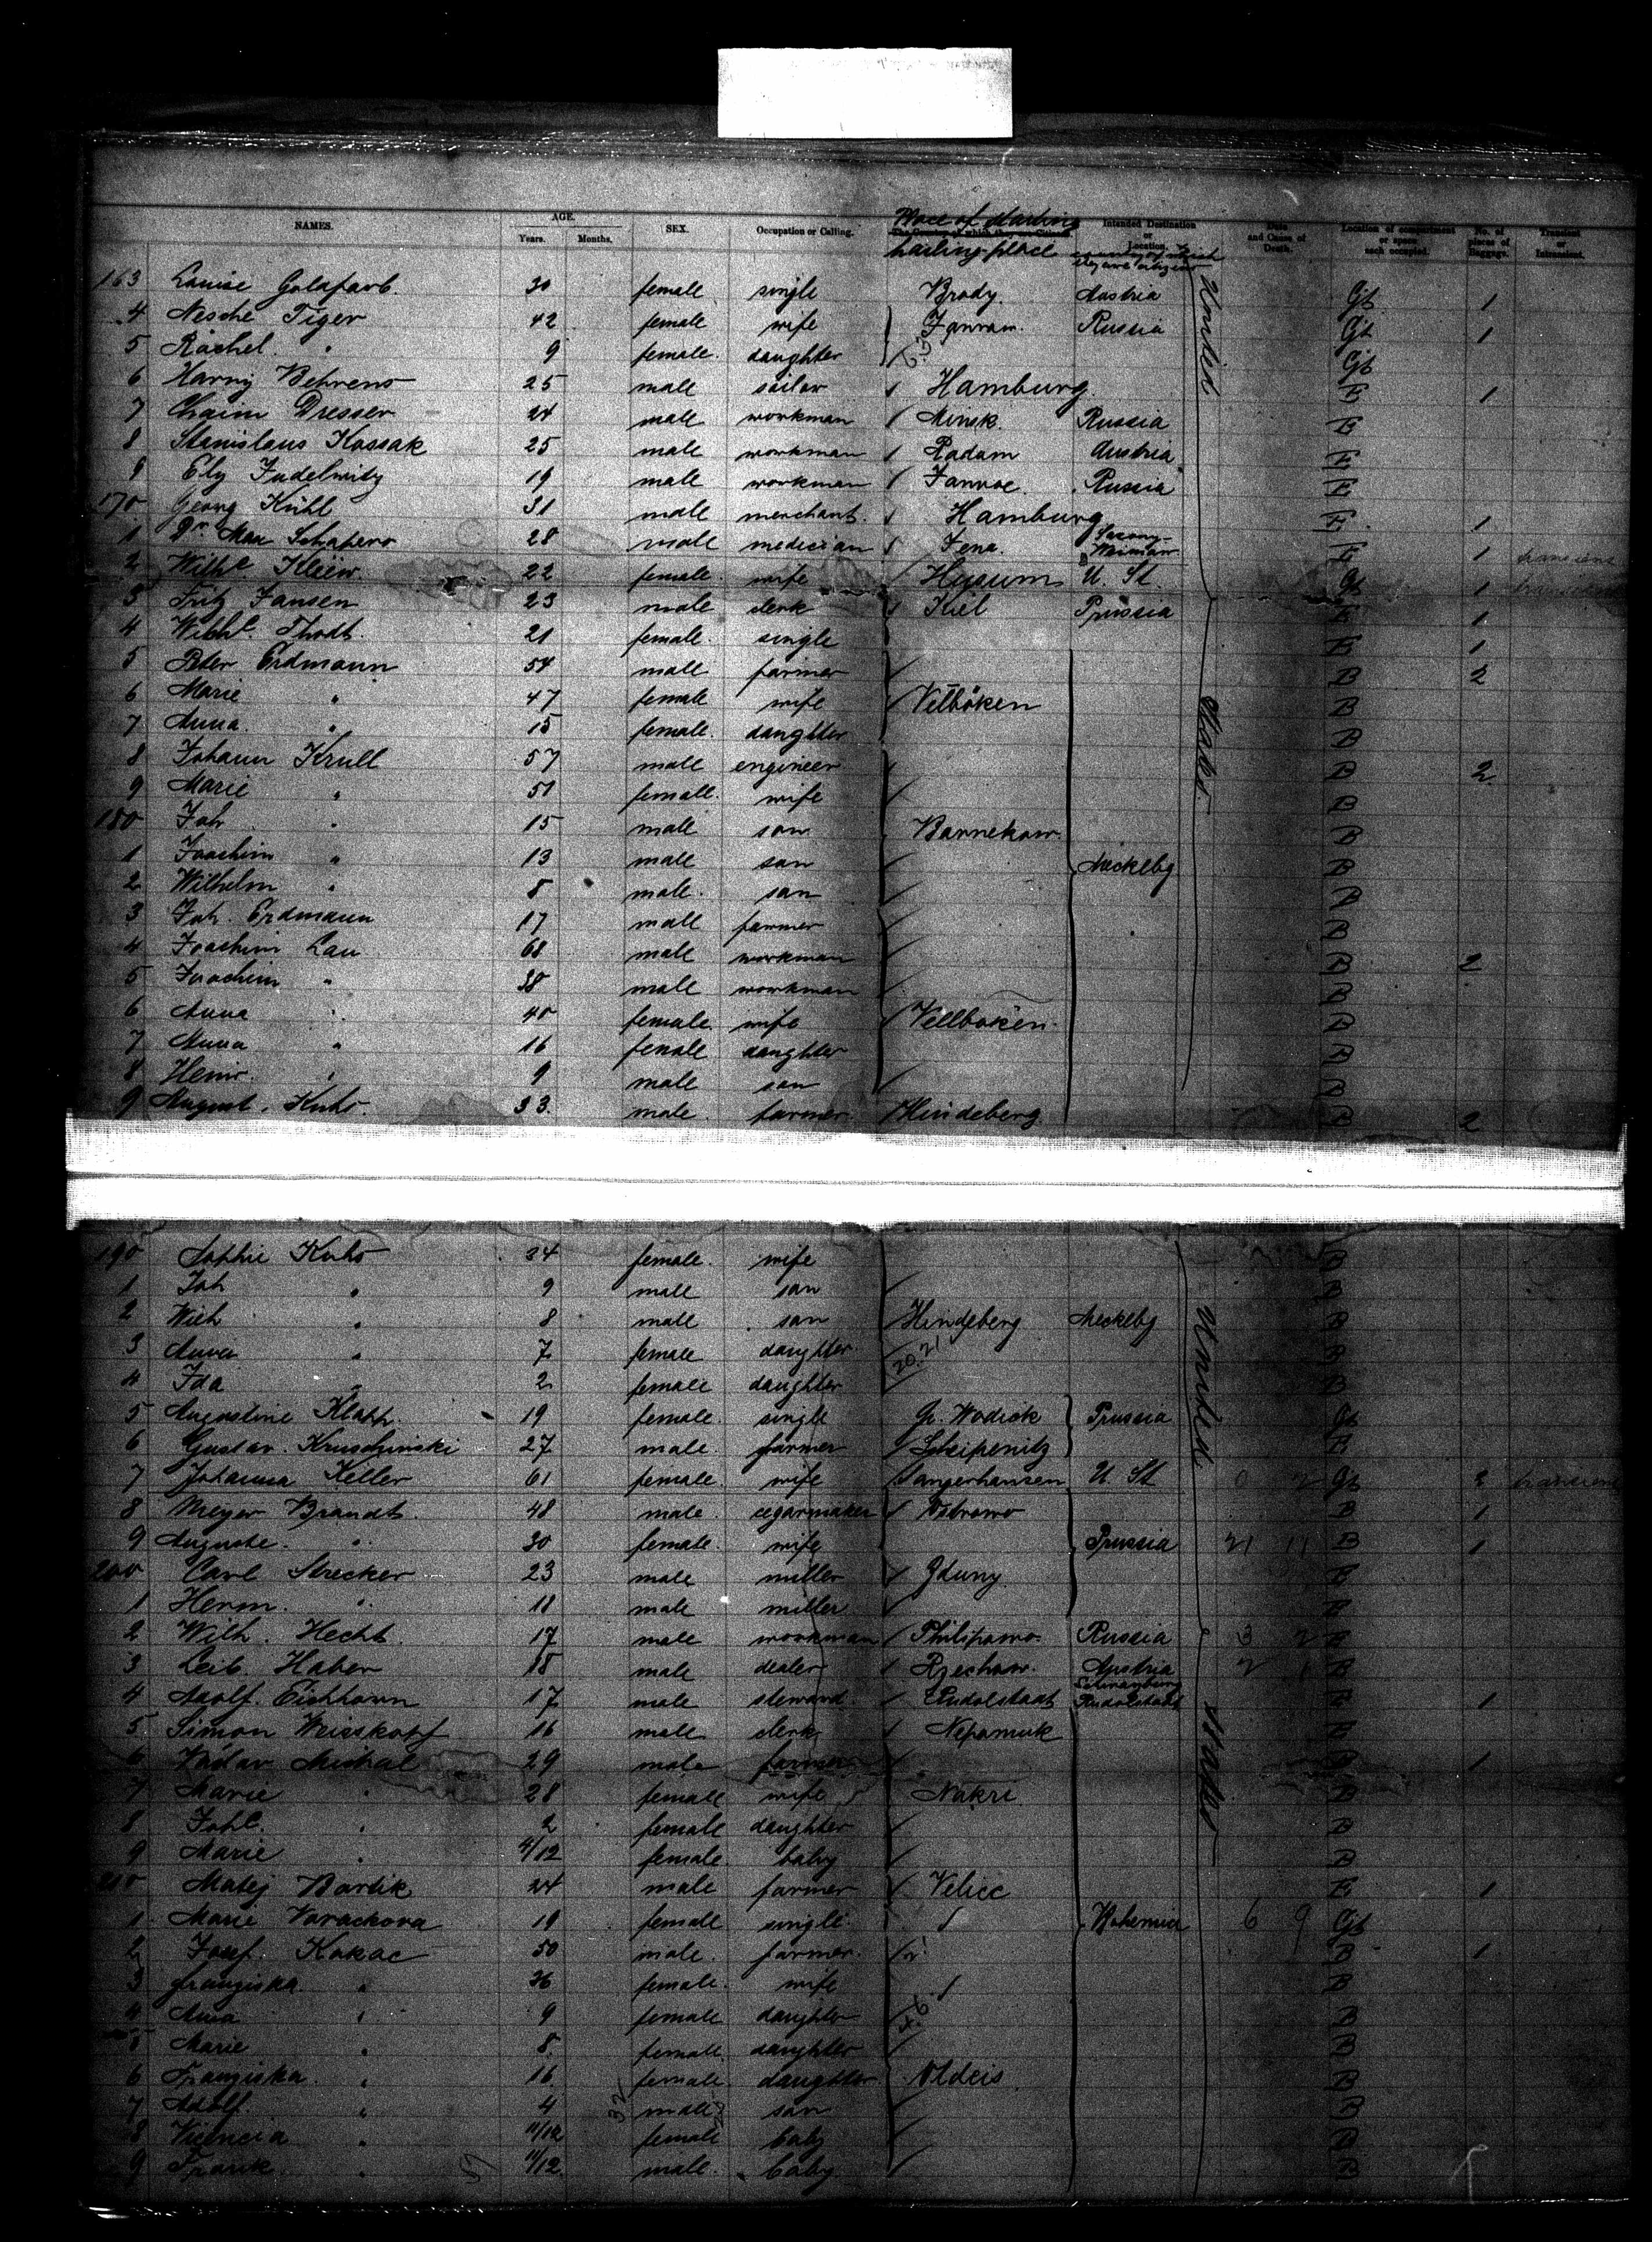 NAMES. AGE. Years. Months. SEX. Occupation or Calling. Place of starting hailing place Intended Destination or Location. country of which they are citizens Date and Cause of Death. Location of compartment or space each occupied. No. of pieces of Baggage. Transient or Intransient.
163 Louise Goldfarb. 30 female single Brody. Austria Gt 1
4 Nesche Tiger 42 female wife Russia Gt 1
5 Rachel " 9 female daughter Gt
6 Harry Behrens 25 male sailor Hamburg E 1
7 Chaim Dresser 24 male workman Minsk. Russia E
8 Stanislaus Kossak 25 male workman Radam Austria E
9 Ely Judelwitz 19 male workman Russia E
170 Georg Kühl 31 male merchant. Hamburg E 1
1 Dr. Max Schapero 28 male medician Jena. Saxony-Weimar E 1
2 Wilhe. 22 female wife Husum U. St. Gt 1
3 Fritz Jansen 23 male clerk Kiel Prussia E 1
4 Wilhe. Thodt. 21 female single E 1
5 Peter Erdmann 54 male farmer B 2
6 Marie " 47 female wife Velböken B
7 Anna " 15 female daughter B
8 Johann Krull 57 male engineer B 2
9 Marie " 51 female wife B
180 Joh " 15 male son Barnekow. B
1 Joachim " 13 male son Mecklbg B
2 Wilhelm " 8 male son B
3 Joh. Erdmann 17 male farmer B
4 Joachim Lau 68 male workman B 2
5 Joachim " 38 male workman B
6 Anna " 40 female wife Vellboken. B
7 Anna " 16 female daughter B
8 Heinr. " 9 male son B
9 August. Kuhs. 33. male farmer Hindeberg. B 2
United States
190 Sophie Kuhs 34 female wife B
1 Joh " 9 male son B
2 Wilh " 8 male son Hindeberg Meckelbg B
3 Anna " 7 female daughter 20.21 B
4 Ida " 2 female daughter B
5 Augustine Klatt. 19 female single Prussia Gt
6 Gustav. Kruschinski 27 male farmer E
7 Johanna Keller 61 female wife Sangerhausen U. St Gt 2
8 Meyer Brandt. 48 male cegarmaker Ostrowo B 1
9 Auguste. " 30 female wife Prussia 21 11 B 1
200 Carl Strecker 23 male miller Zduny E
1 Herm. " 18 male miller E
2 Wilh. Hecht. 17 male workman Philipowo. Russia 3 2 E
3 Leib. Haber 18 male dealer Rzechow. Austria 2 1 B
4 Adolf. Eichhorn 17 male steward Rudolstadt Schwarzburg Rudolstadt E 1
5 Simon Weisskopf 16 male clerk Nepamuk E
6 Vaclav Michal 29 male farmer B 1
7 Marie " 28 female wife Nakri B
8 " 2 female daughter B
9 Marie " 4/12 female baby B
210 Matej Bartik 24 male farmer Velice E 1
1 Marie Vorackova 19 female single Bohemia 6 9 Gt
2 Josef. Kakac 50 male farmer B 1
3 Franziska " 36 female wife B
4 Anna " 9 female daughter B
5 Marie " 8 female daughter B
6 Franziska " 16 female daughter B
7 Adolf " 4 male son B
8 Vicencia " 11/12 female baby B
9 Frank " 11/12 male baby B
United States